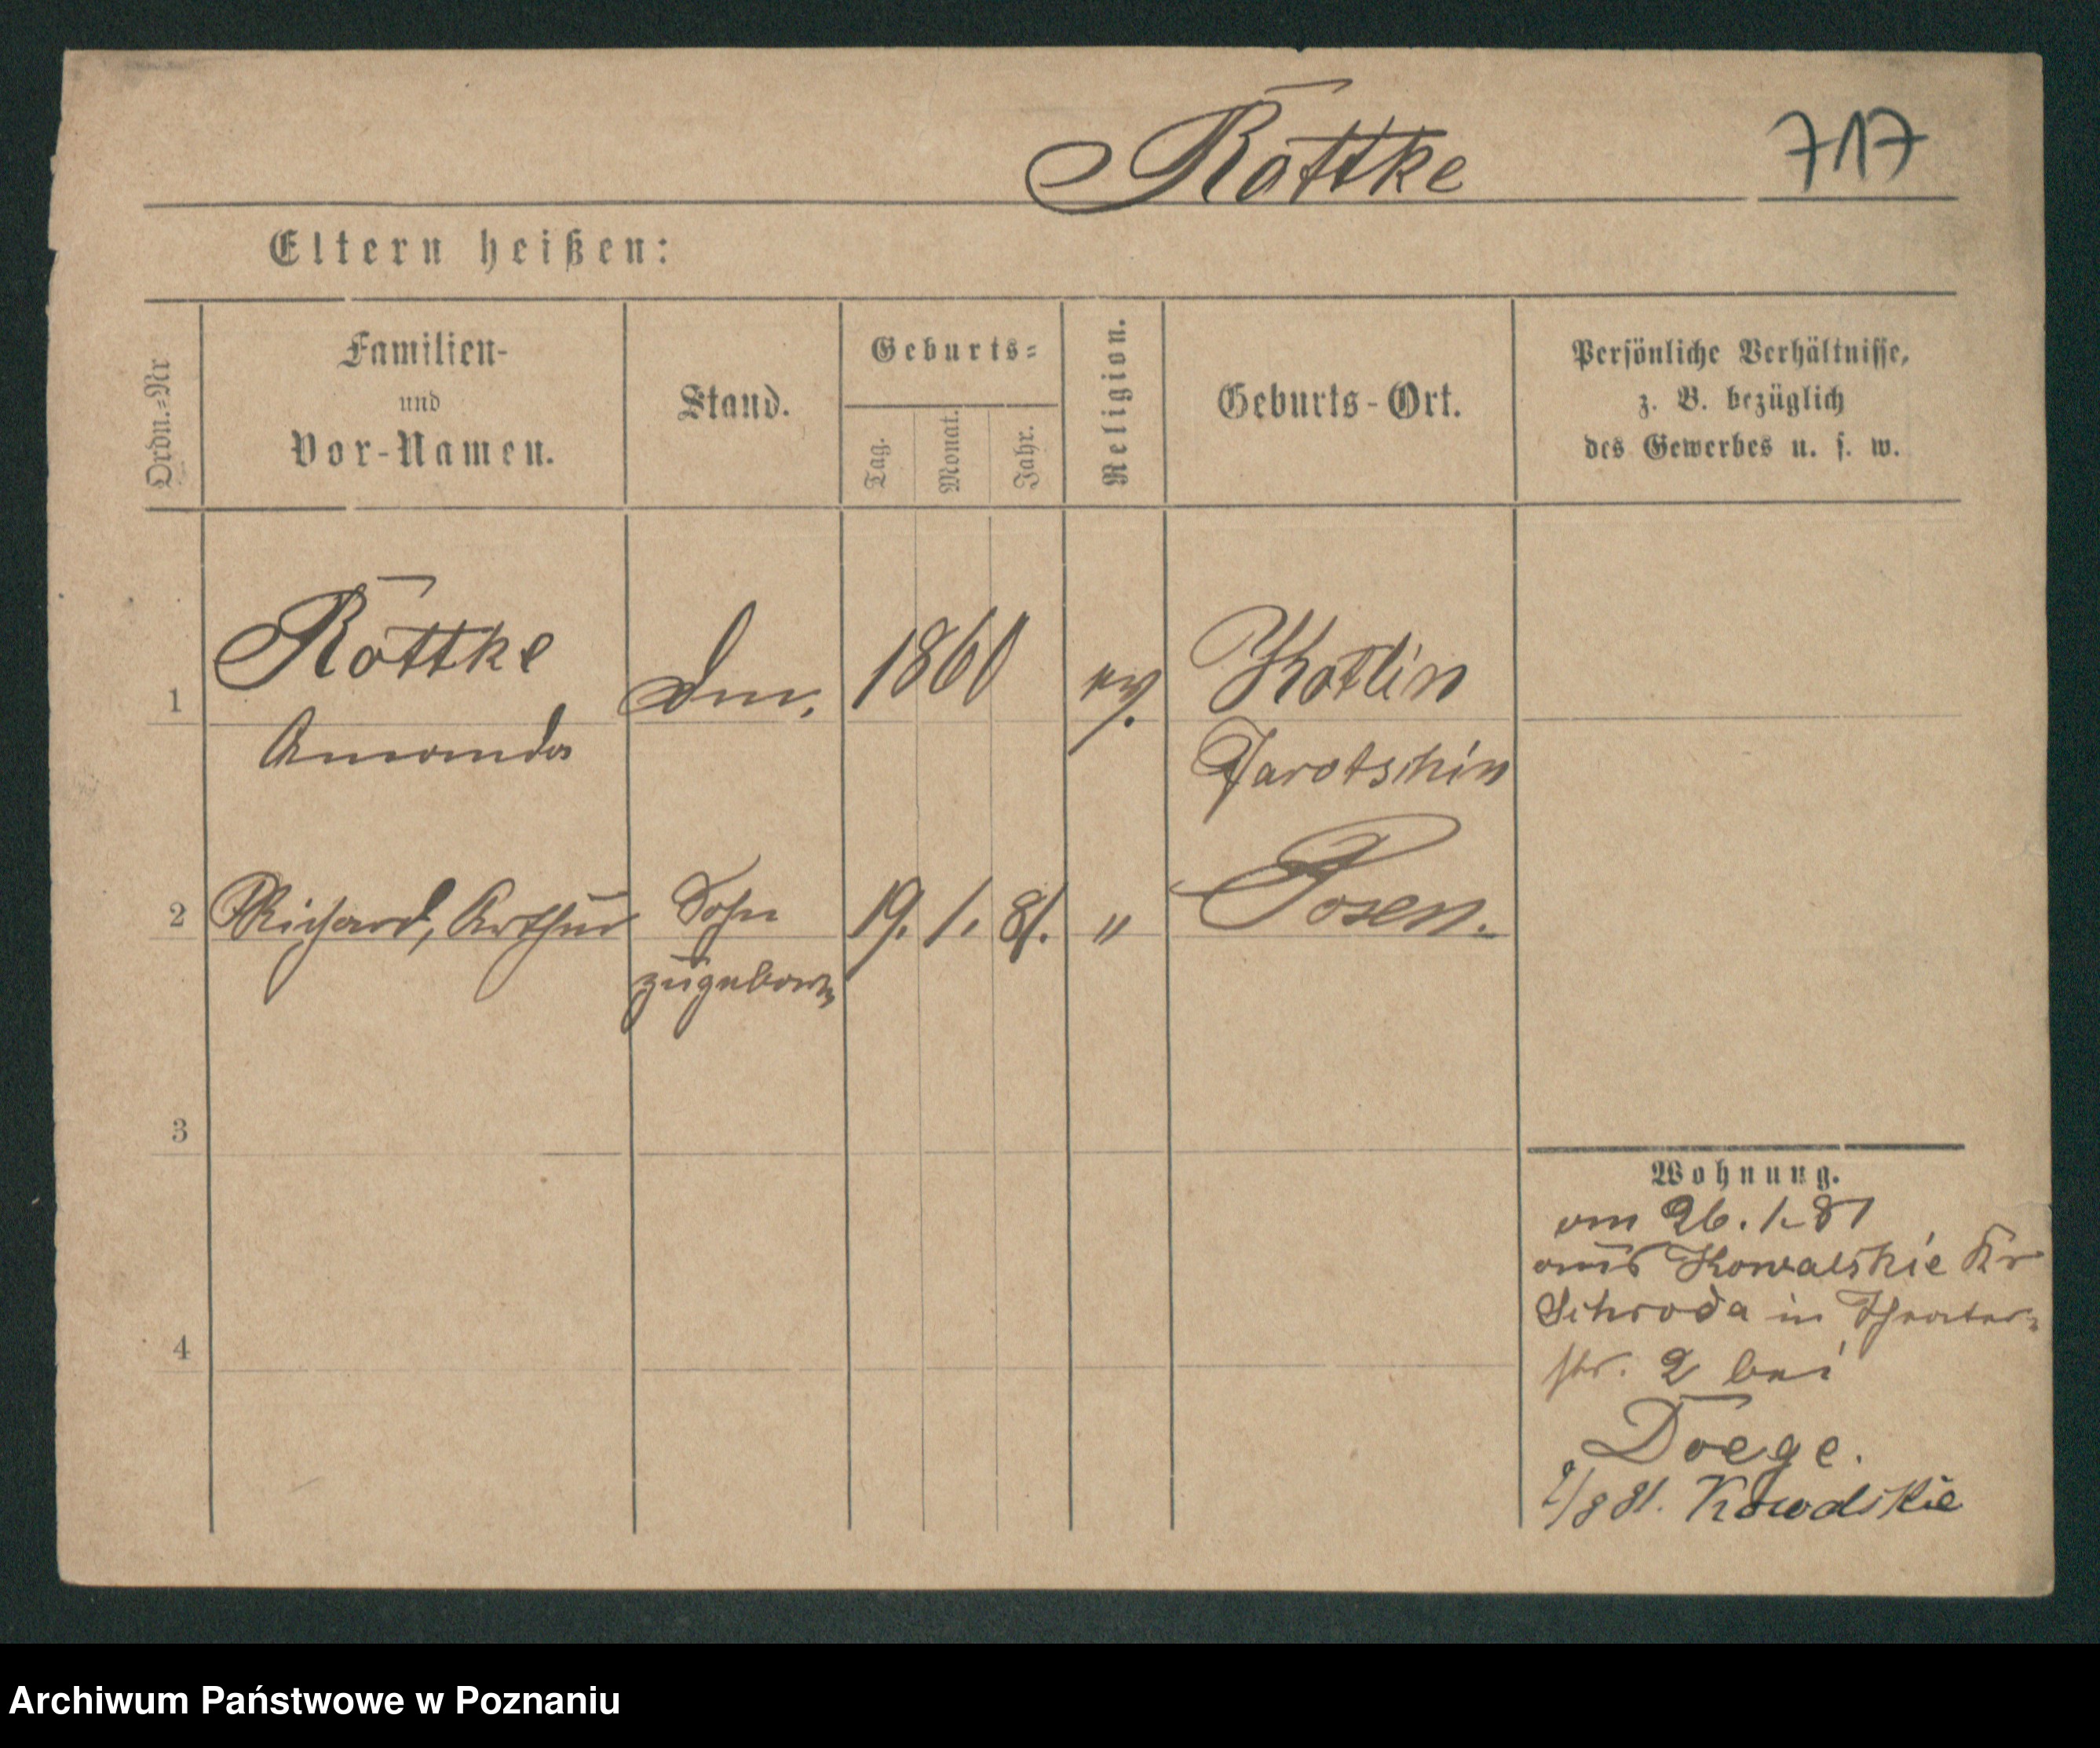 Rottke 717
Eltern heißen:
Ordn.-Nr
Familien-
und
Vor-Namen.
Stand.
Geburts-
Tag.
Monat.
Jahr.
Religion.
Geburts-Ort.
Persönliche Verhältnisse,
z. B. bezüglich
des Gewerbes u. s. w.
1 Rottke 1860 ev. Kotlin
Amanda
Jarotschin
2 Richard, Arthur Sohn 19. 1. 81. " Posen.
zugeboren
3
4
Wohnung.
am 26. 1. 81
aus Kowalskie Kr
Schroda in Theater-
str. 2 bei
Doege.
81. Kowalskie
Archiwum Państwowe w Poznaniu